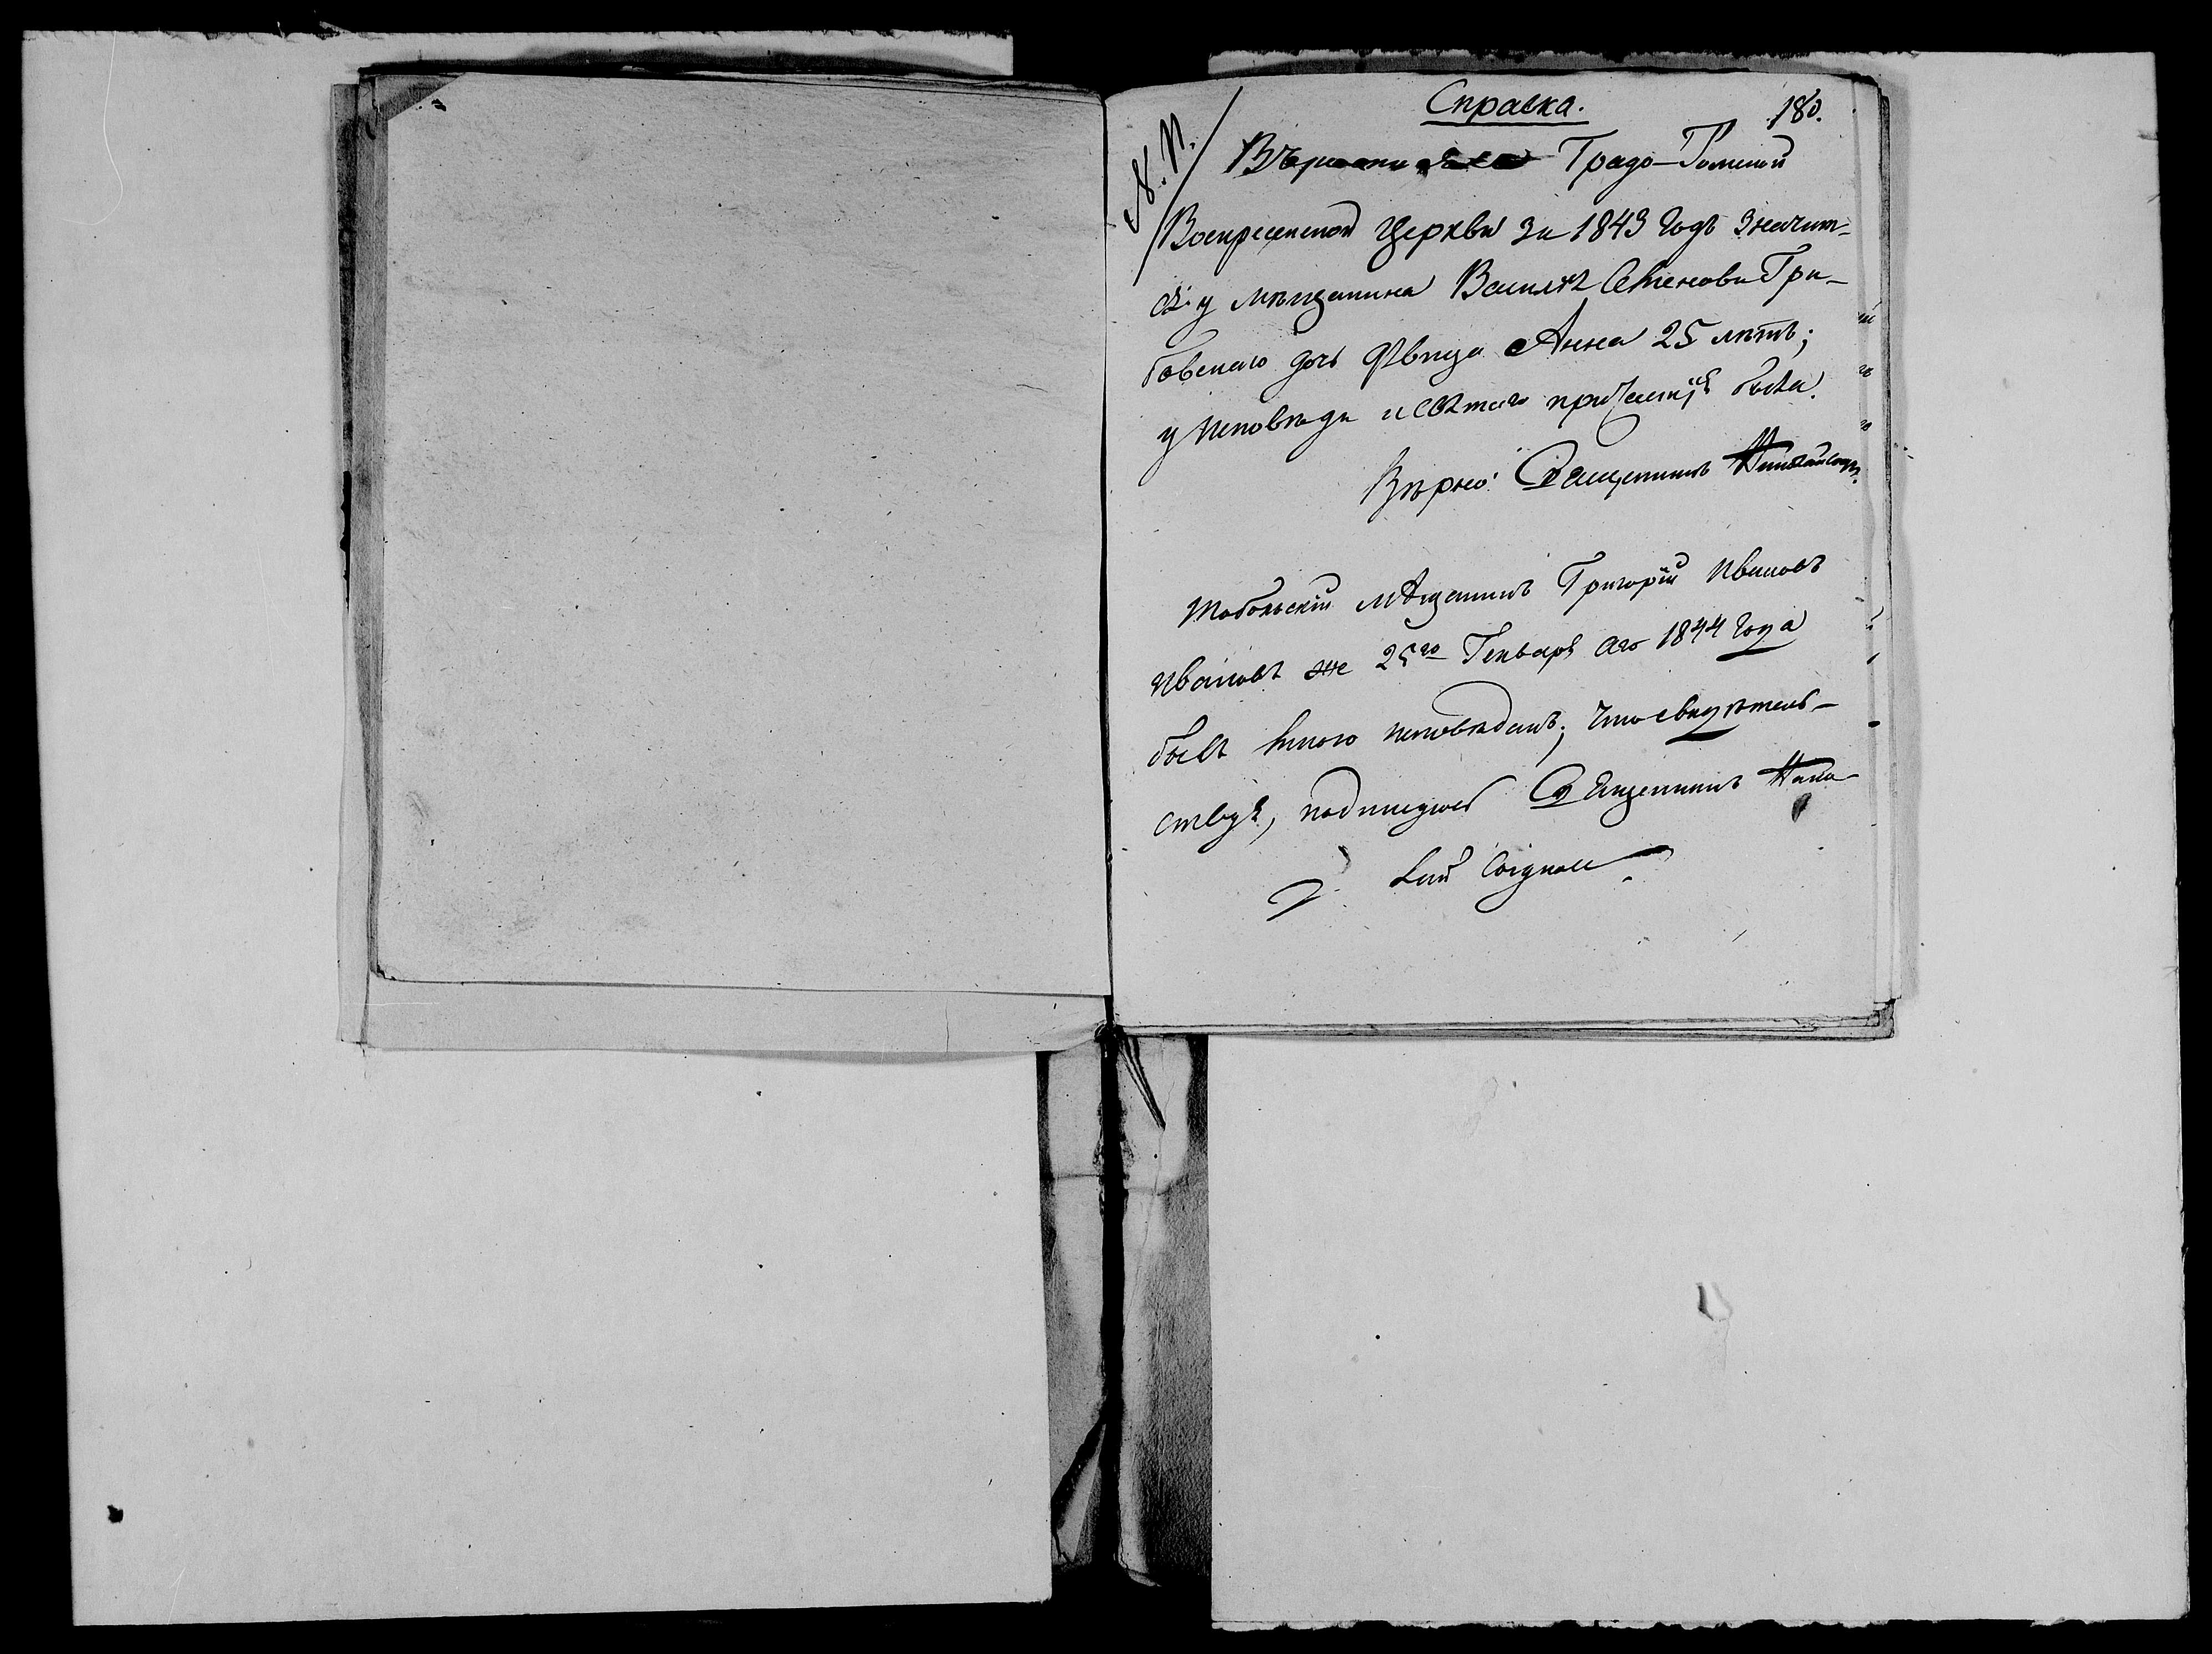 Справка.
180.
N. П.
Въ росписяхъ Градо-Томской
Воскресенской Церкви за 1843 годъ значит-
ся: у мѣщанина Василья Семенова Гри-
бовскаго дочь дѣвица Анна 25 лѣтъ;
у исповѣди и Святаго причастія была.
Вѣрно: Священникъ
Тобольскій мѣщанинъ Григорій Ивановъ
Ивановъ же 25го Генваря сего 1844 года
былъ мною исповѣданъ; что свидѣтель-
ствуя, подписуюсь Священникъ